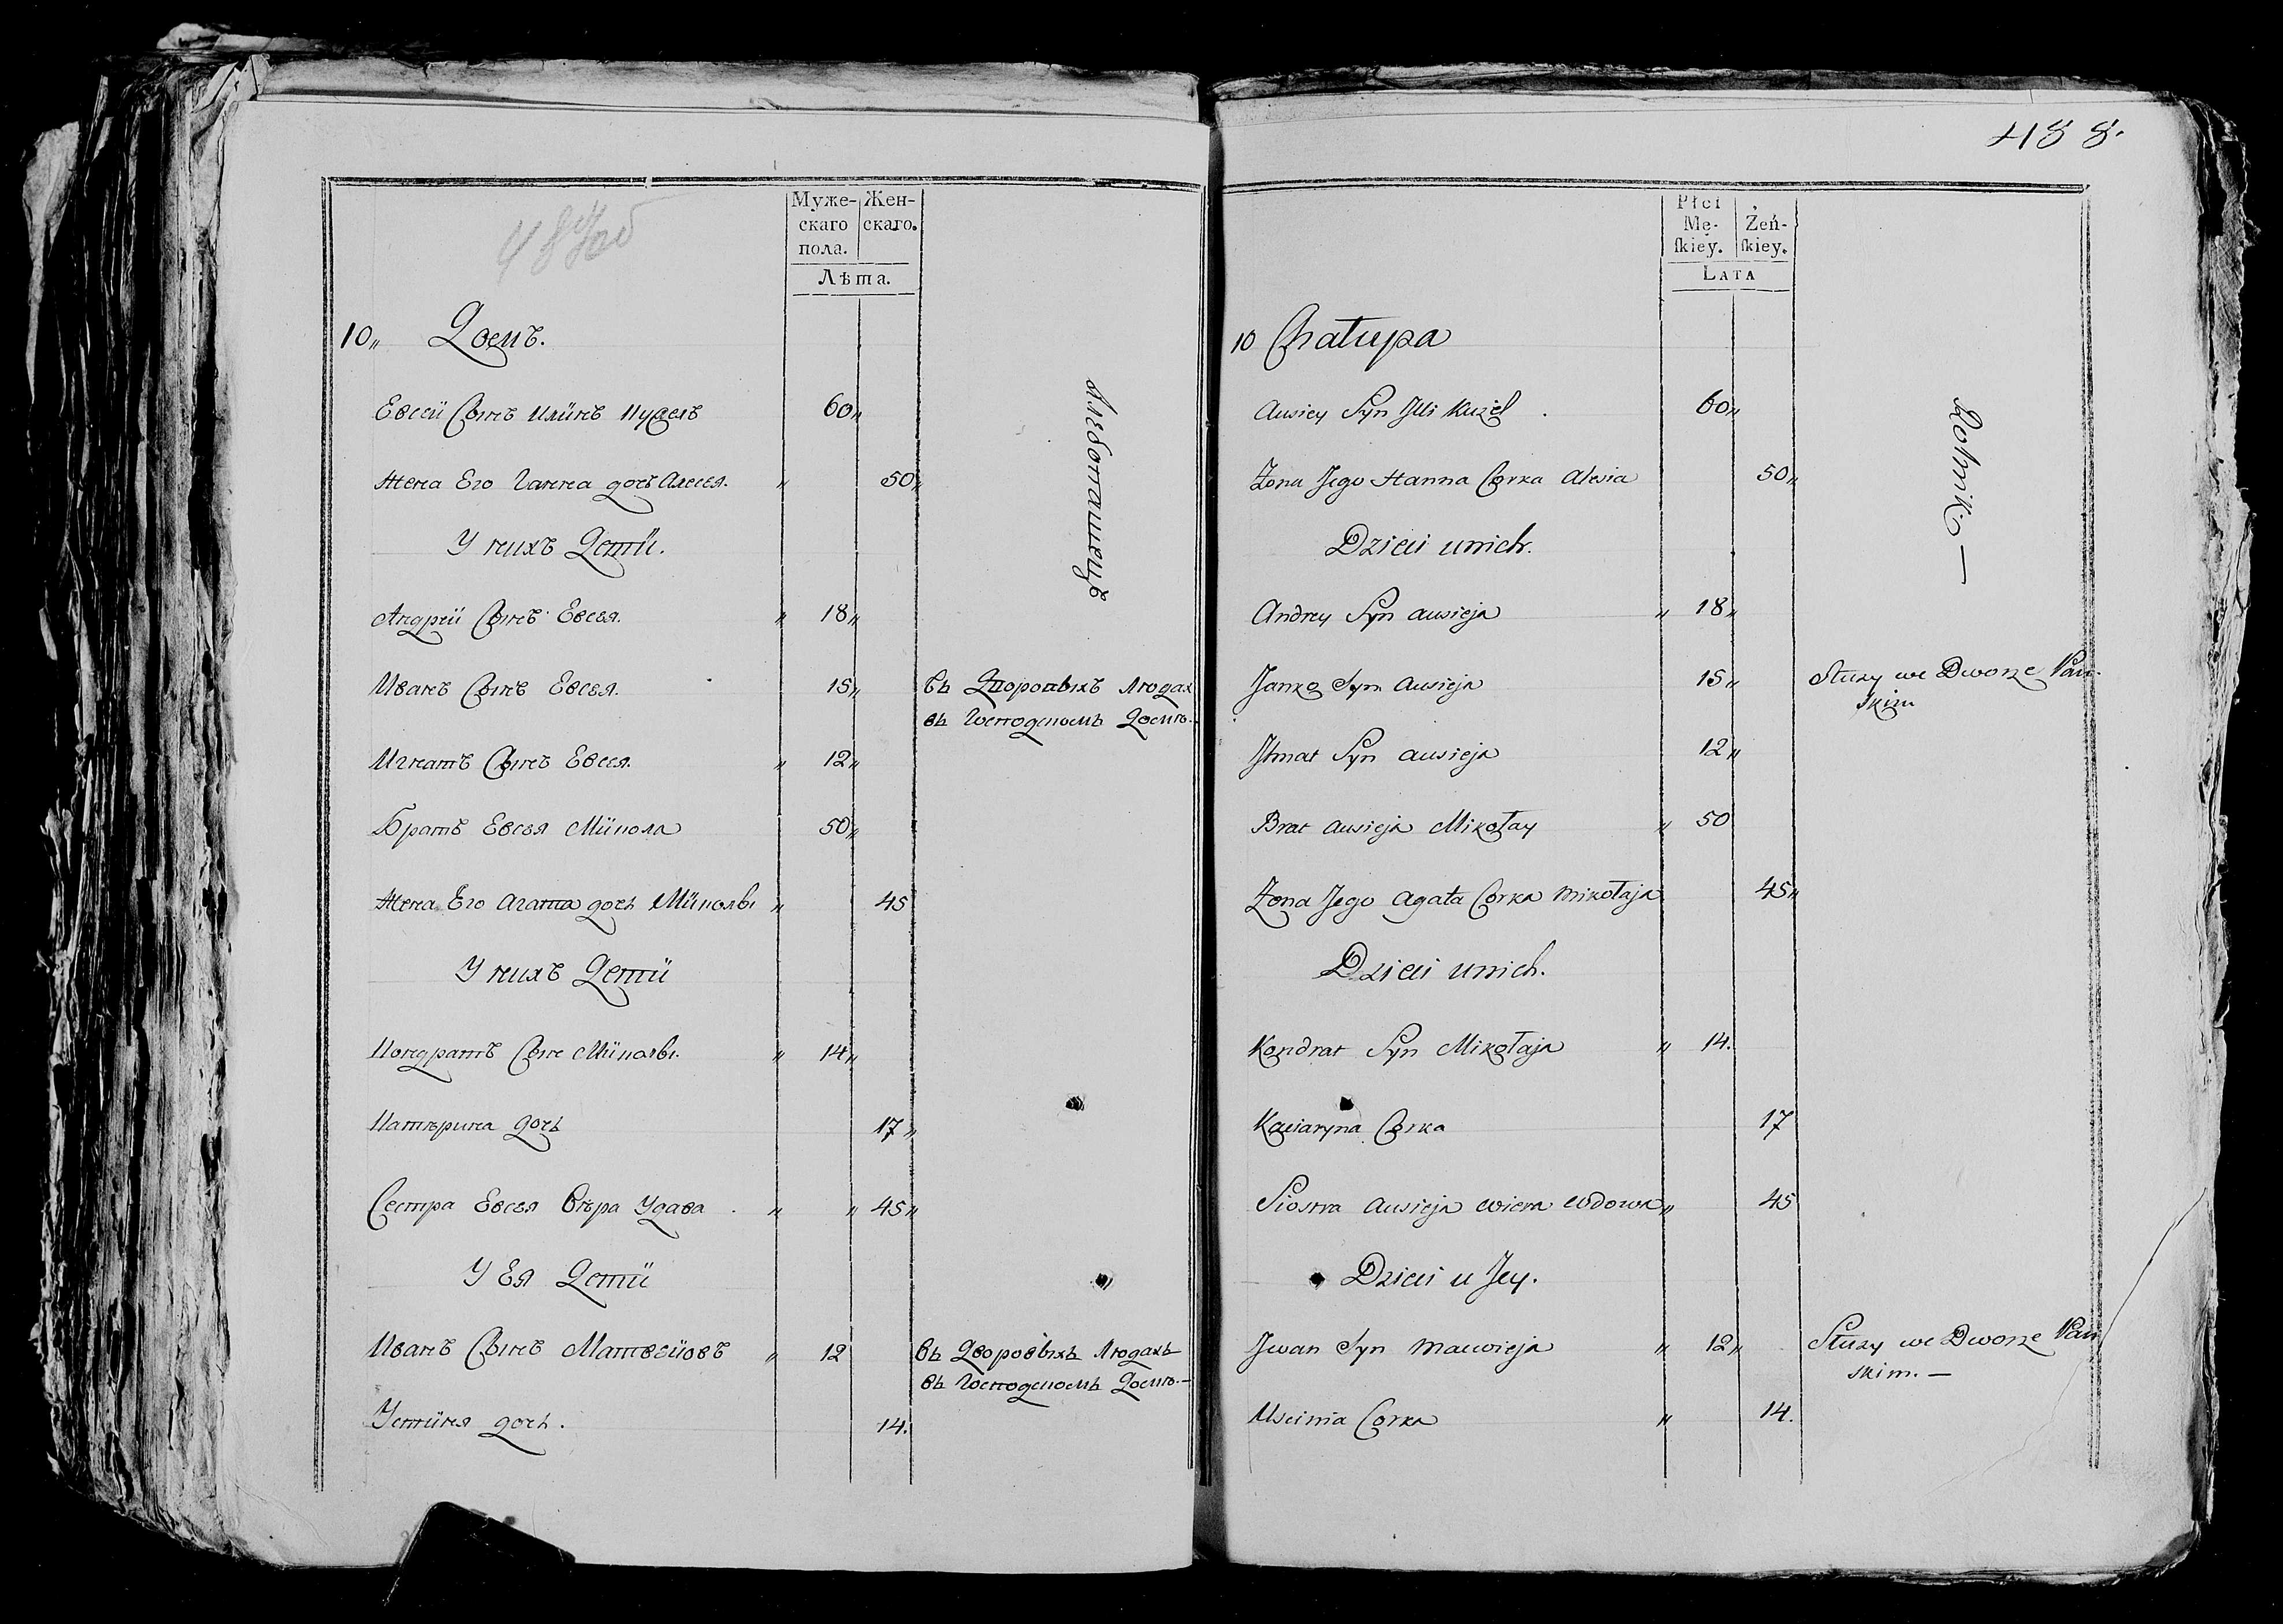 Муже-
скаго
пола.
Жен-
скаго.
Лѣта.
10„ Домъ.
Евсей Сынъ Илїинъ Кузелъ 60„
Жена Его Ганна дочь Алесея. „ 50„
У нихъ Дети.
Андрей Сынъ Евсея. „ 18„
Иванъ Сынъ Евсея. 15„ въ Дворовыхъ Людах
въ Господскомъ Доміь.
Игнатъ Сынъ Евсея. „ 12„
Братъ Евсея Микола 50„
Жена Его Агата дочь Миколы „ 45
У нихъ Дети
Кондратъ Сынъ Миколы. „ 14„
Катѣрина дочь 17„
Сестра Евсея Вѣра Удава „ „ 45„
У Ея Дети
Иванъ Сынъ Матвѣйовъ „ 12 въ Дворовыхъ Людахъ
въ Господскомъ Домѣ.—
Устиня дочь. 14.
Хлѣбопашецъ
488.
Płci
Mę-
ſkiey.
Żeń-
ſkiey.
LATA
10 Chałupa
Ausiey Syn Jlli Kuzel 60„
Żona Jego Hanna Corka Alesia 50„
Dzieci u nich.
Andrey Syn Ausieja „ 18„
Janko Syn Ausieja 15„ Służy we Dworze Pań-
skim
Jhnat Syn Ausieja 12„
Brat Ausieja Mikołay „ 50
Żona Jego Agata Corka Mikołaja 45„
Dzieci u nich.
Kondrat Syn Mikołaja „ 14.
Kaciaryna Corka 17
Siostra Ausieja Wiera Wdowa „ 45
Dzieci u Jey.
Jwan Syn Maćwieja „ 12„ Służy we Dworze Pań
skim. —
Uscinia Corka „ 14.
Rolnik. —